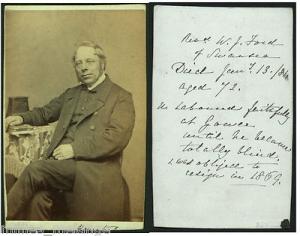 Rev. W. J. Ford
of Swansea
Died Jany. 13.
aged 72.
laboured faithfully
at Gower
until he became
totally blind.
& was obliged to
resign in 1869.